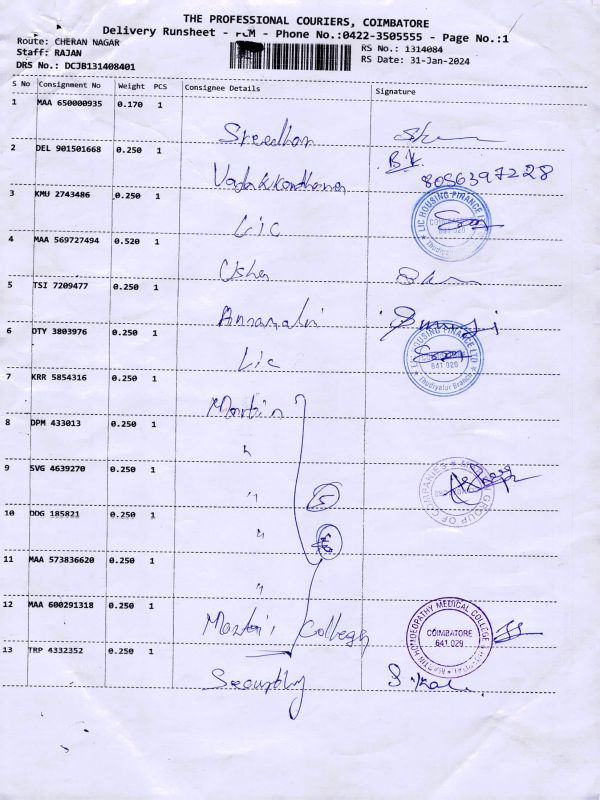 THE PROFESSIONAL COURIERS, COIMBATORE
Delivery Runsheet - PCM - Phone No.:0422-3505555 - Page No.:1
Route: CHERAN NAGAR
RS No.: 1314084
Staff: RAJAN
RS Date: 31-Jan-2024
DRS No.: DCJB131408401
S No Consignment No Weight PCS Consignee Details Signature
1 MAA 650000935 0.170 1
Sreedhar
2 DEL 901501668 0.250 1
8056397228
3 KMU 2743486 0.250 1
Lic
LIC HOUSING FINANCE LTD
Thudiyalur Branch
4 MAA 569727494 0.520 1
Usha
5 TSI 7209477 0.250 1
6 DTY 3803976 0.250 1
Lic
LIC HOUSING FINANCE LTD
641 029
Thudiyalur Branch
7 KRR 5854316 0.250 1
Martin
8 DPM 433013 0.250 1
"
9 SVG 4639270 0.250 1
"
GROUP OF COMPANIES
10 DDG 185821 0.250 1
"
11 MAA 573836620 0.250 1
"
12 MAA 600291318 0.250 1
Martin College
MARTIN HOMOEOPATHY MEDICAL COLLEGE
COIMBATORE
641 029
13 TRP 4332352 0.250 1
Security